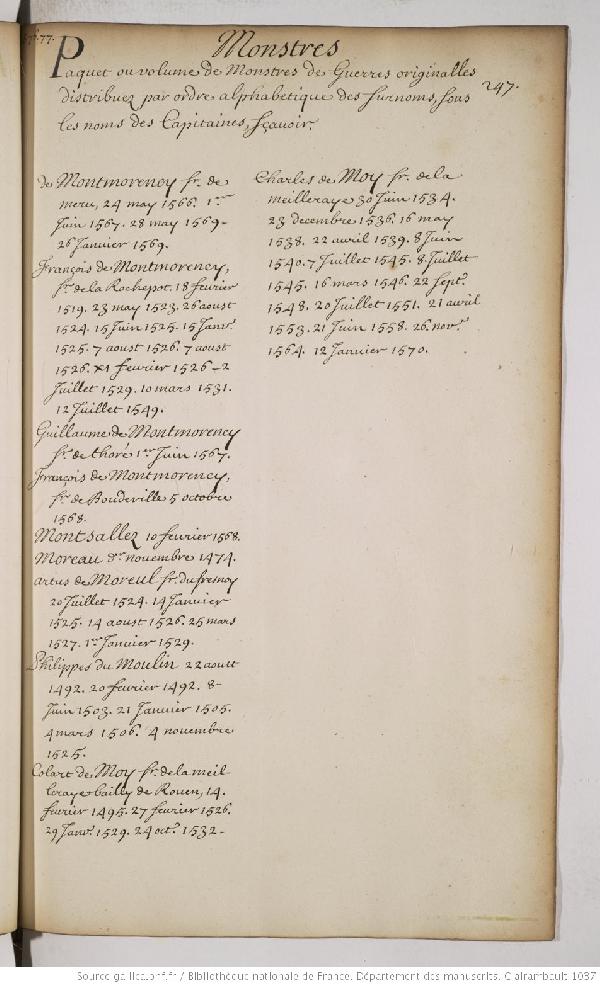 77.
Monstres
247.
Paquet ou volume de Monstres de Guerres originalles
distribuez par ordre alphabetique des surnoms, sous
les noms des Capitaines, sçavoir.
de Montmorency sr. de
meru, 24 may 1566. 1er
Juin 1567. 28 may 1569-
26 Janvier 1569.
François de Montmorency,
sr. de la Rochepot. 18 fevrier
1519. 23 may 1523. 26 aoust
1524. 15 Juin 1525. 15 Janvr.
1525. 7 aoust 1526. 7 aoust
1526. x1 fevrier 1526-2
Juillet 1529. 10 mars 1531.
12 Juillet 1549.
Guillaume de Montmorency
sr. de thoré 1er Juin 1567.
François de Montmorency,
sr. de Boudeville 5 octobre
1568.
Montsallez 10 fevrier 1568.
Moreau novembre 1474.
artus de Moreul sr. du fresnoy
20 Juillet 1524. 14 Janvier
1525. 14 aoust 1526. 25 mars
1527. 1er Janvier 1529.
Philippes du Moulin 22 aoust
1492. 20 fevrier 1492. 8-
Juin 1503. 21 Janvier 1505.
4 mars 1506. 4 novembre
1525.
Colart de Moy sr. de la meil
leraye bailly de Rouen, 14.
fevrier 1495. 27 fevrier 1526.
29 Janvr. 1529. 24 oct. 1532-
Charles de Moy sr. de la
meilleraye 30 Juin 1534.
23 decembre 1536. 16 may
1538. 22 avril 1539. 8 Juin
1540. 7 Juillet 1545. 8 Juillet
1545. 16 mars 1546. 22 sept.
1548. 20 Juillet 1551. 21 avril
1553. 21 Juin 1558. 26 novr.
1564. 12 Janvier 1570.
Source gallica.bnf.fr / Bibliothèque nationale de France. Département des manuscrits. Clairambault 1037